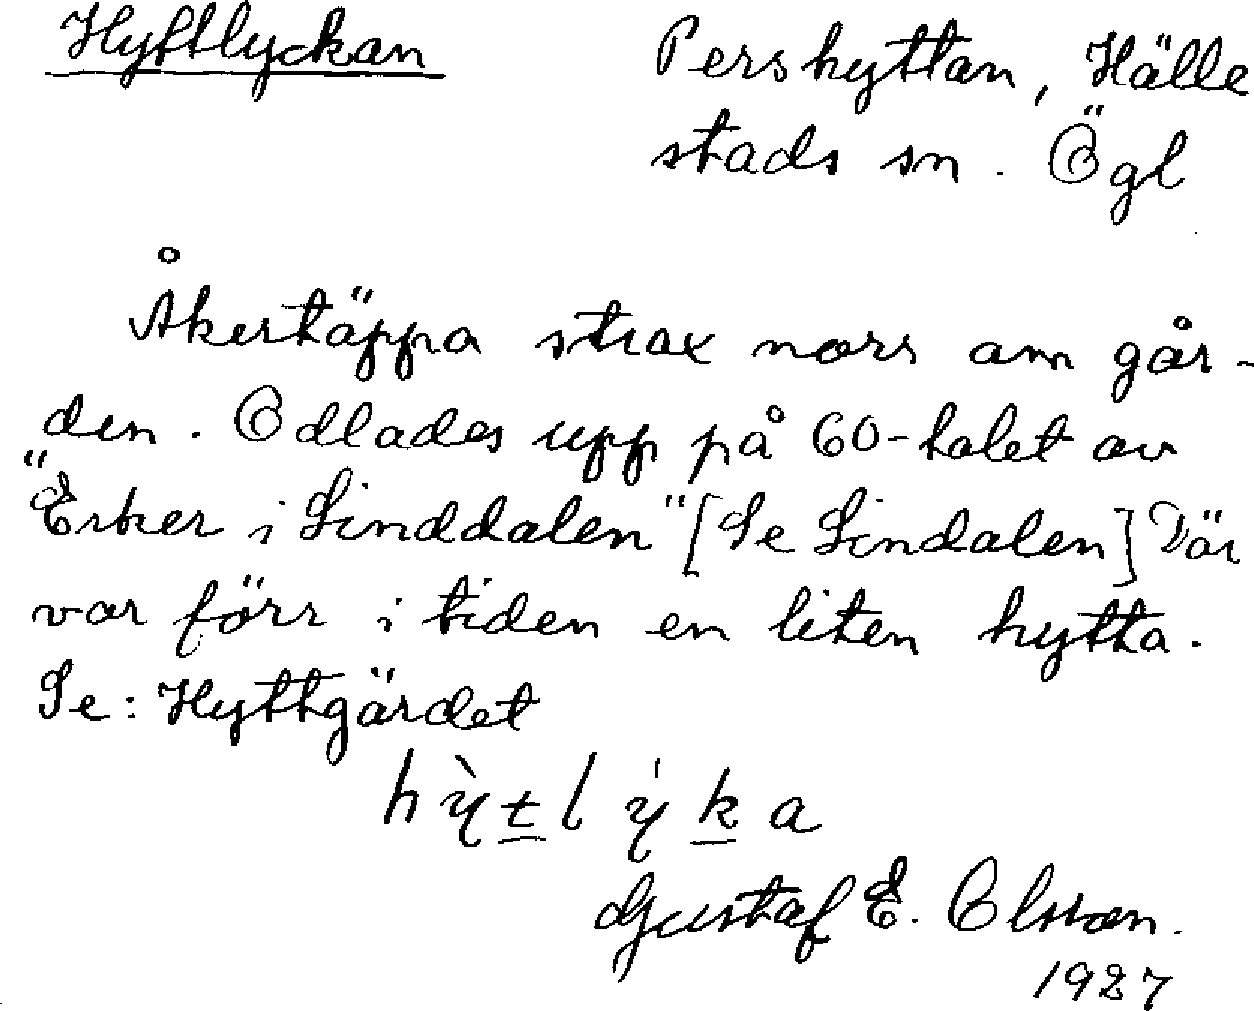 Hyttlyckan
Pershyttan, Hälle
stads sn. Ögl
Åkertäppa strax norr om går-
den. Odlades upp på 60-talet av
"Erker i Linddalen" [Se Lindalen] Där
var förr i tiden en liten hytta.
Se: Hyttgärdet
hỳtlýka
Gustaf E. Olsson.
1927